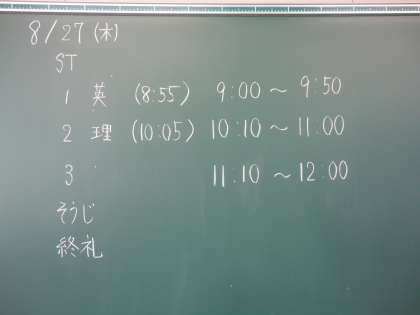 8/27 (木)
ST
1 英 (8:55) 9:00 ～ 9:50
2 理 (10:05) 10:10 ～ 11:00
3 11:10 ～ 12:00
そうじ
終礼